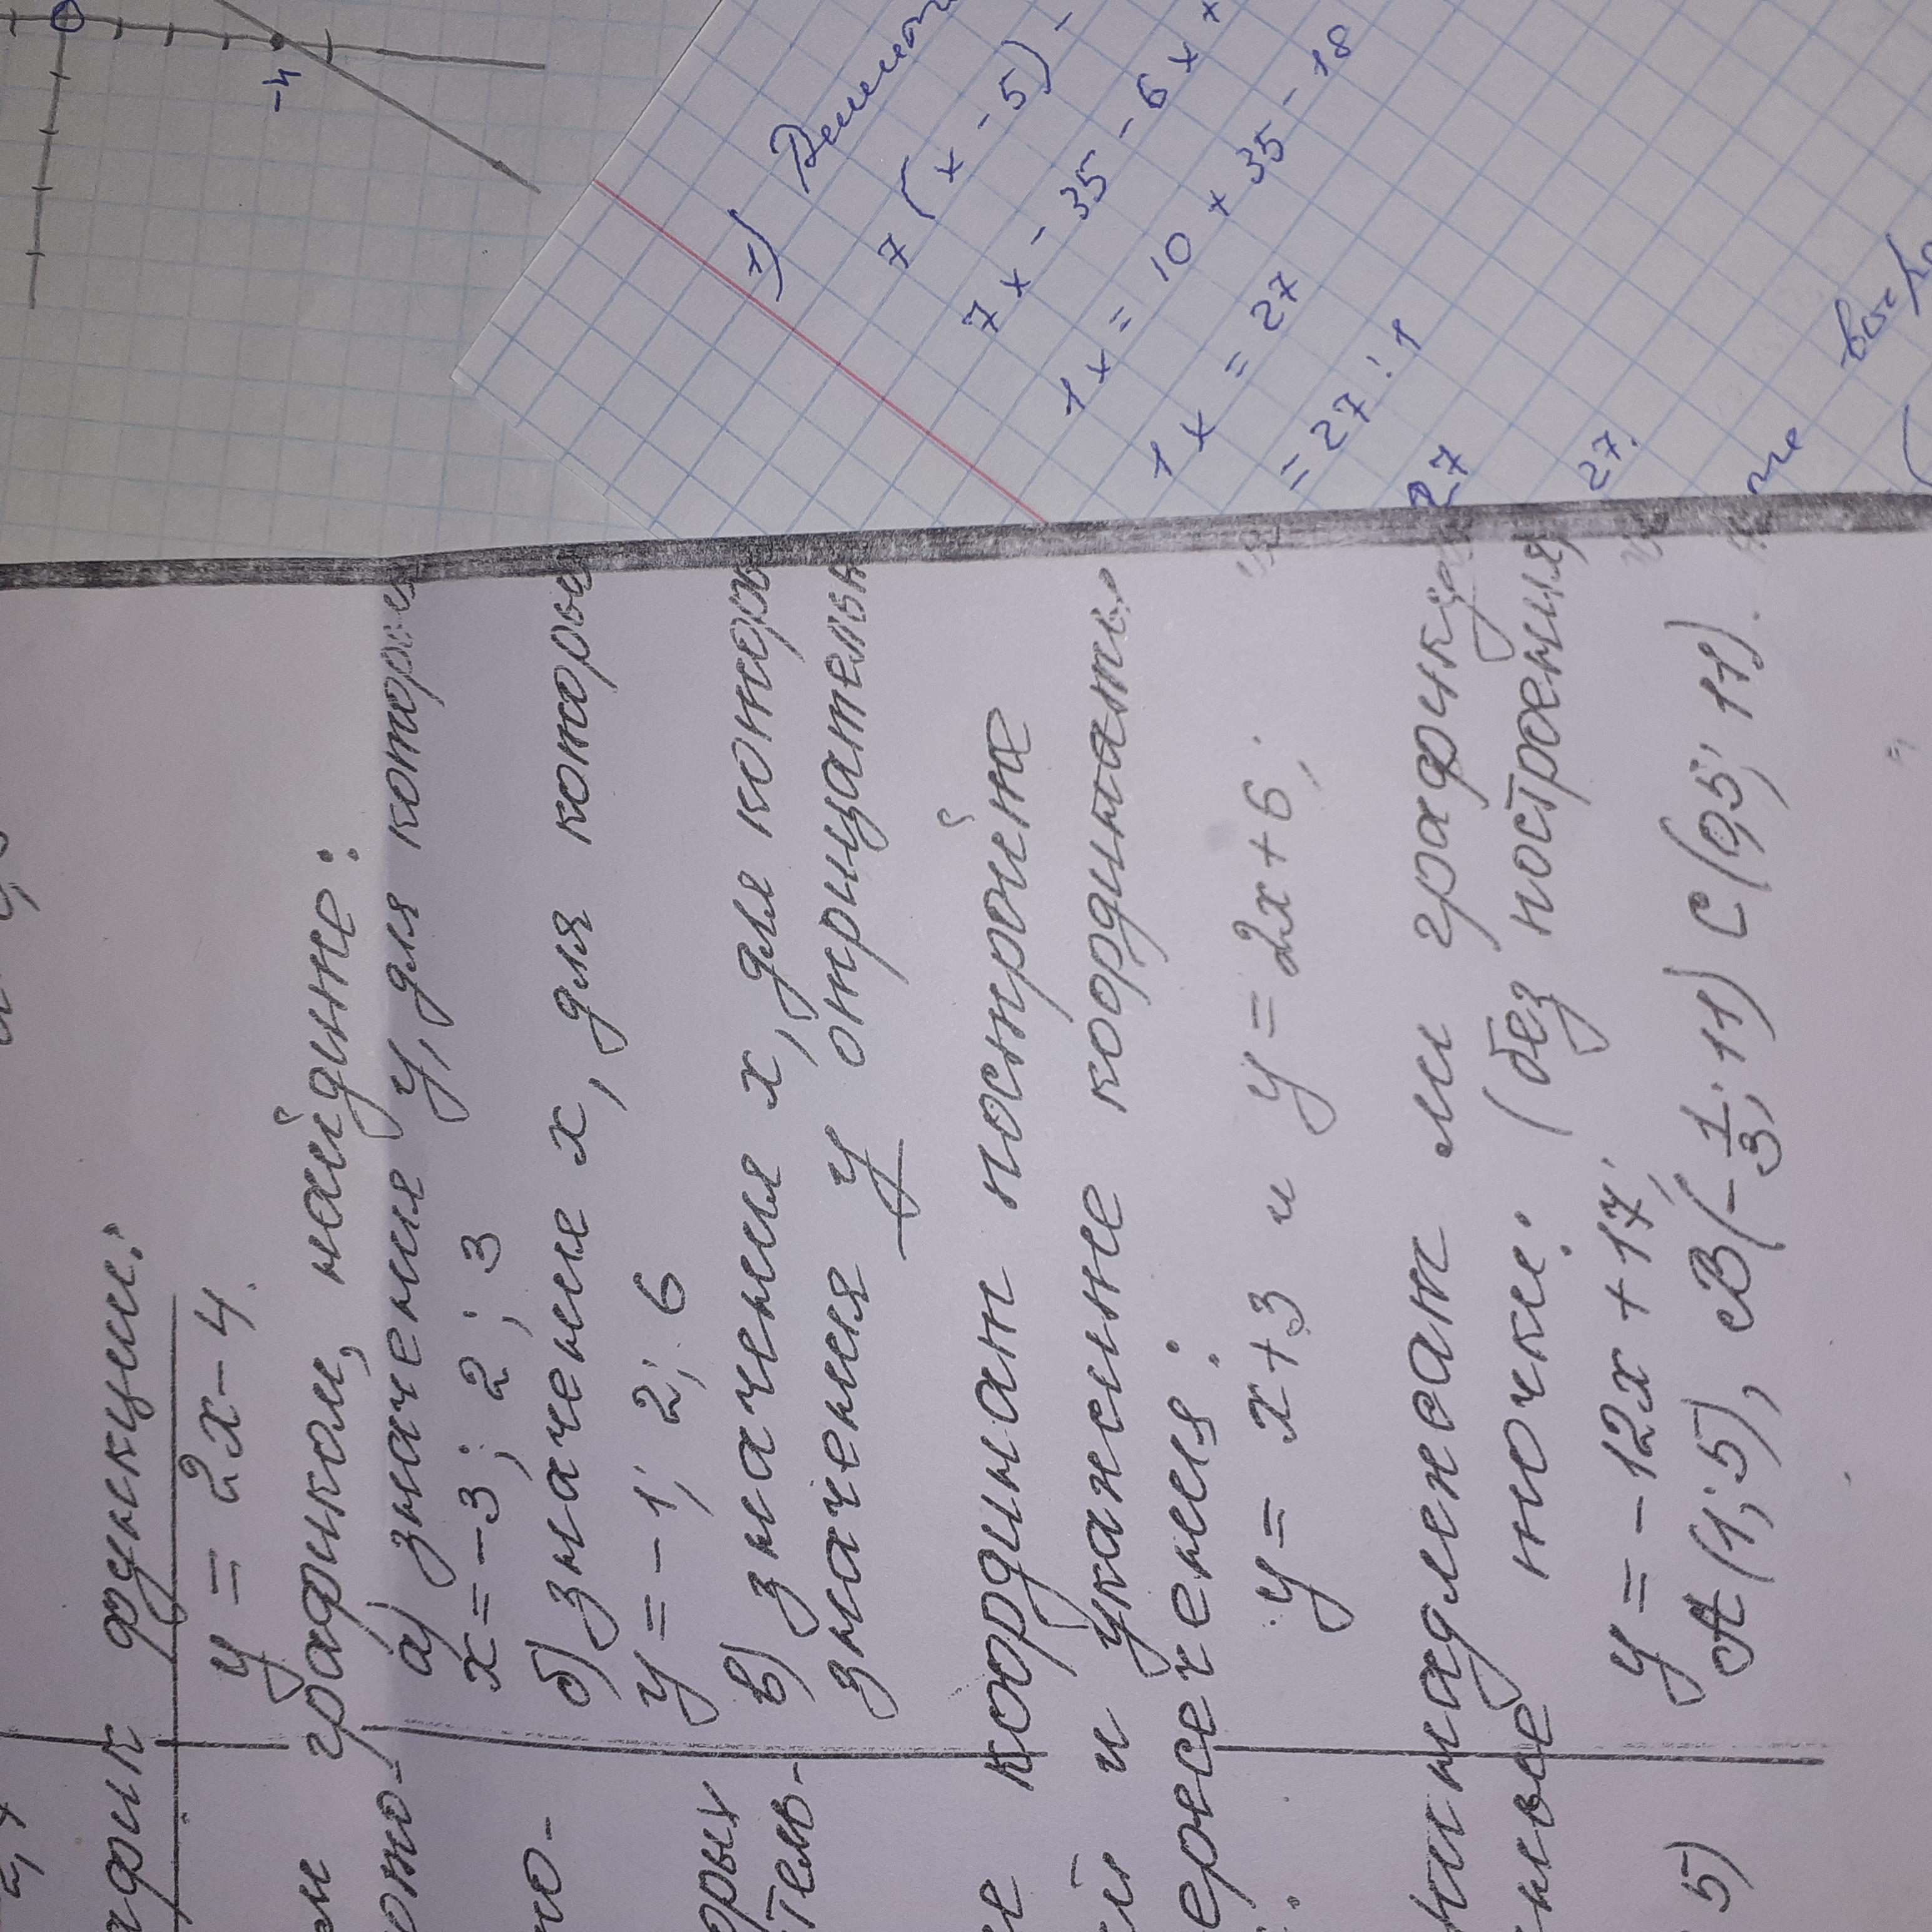 график функции:
y = 2x - 4.
графиком, найдите:
а) значения y, для которых
x = -3; 2; 3
б) значение x, для которых
y = -1; 2; 6
в) значения x, для котор
значения y отрицательн
орых
тель-
координат постройте
и укажите координаты
пересечения:
y = x + 3 и y = 2x + 6;
принадлежат ли графику
точки: (без построения)
y = -12x + 17;
A(1; 5), B(-1/3; 11) C(0,5; 11).
5)
-4
1)
7(x - 5) -
7x - 35 - 6x +
1x = 10 + 35 - 18
1x = 27
= 27 : 1
27
27.